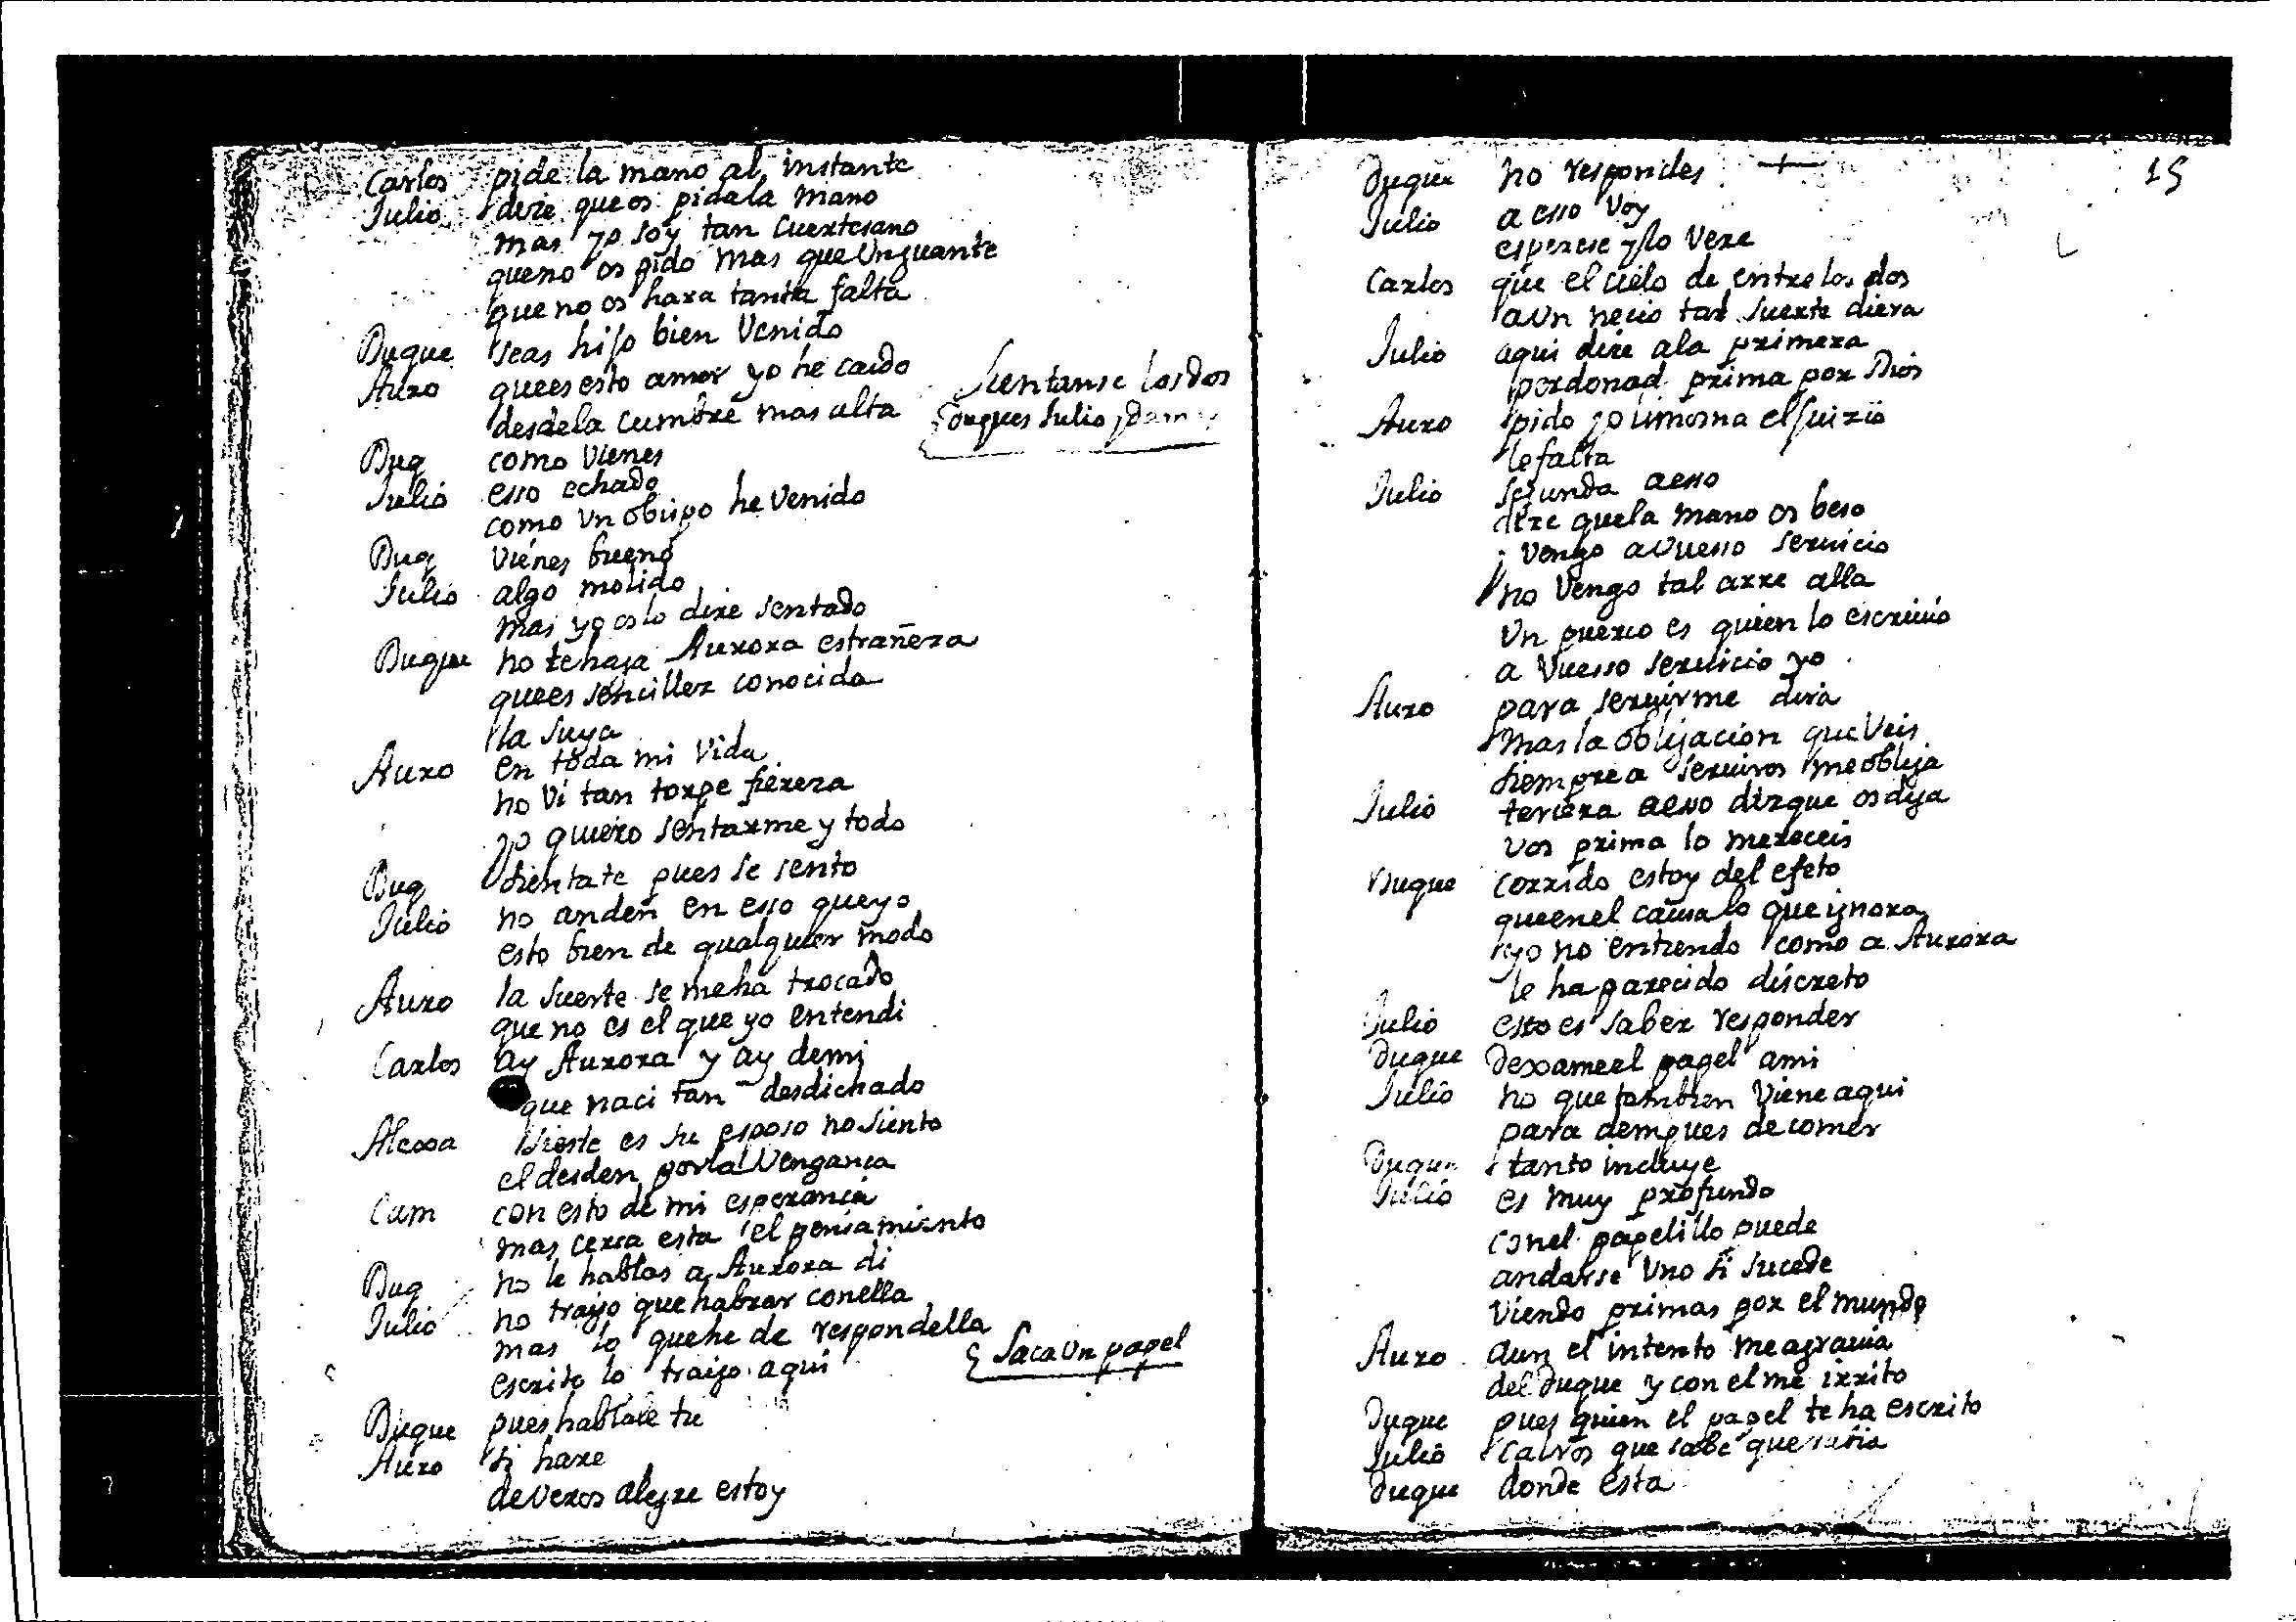 Carlos pide la mano al instante
Julio dize que os pida la mano
mas yo soy tan Cuertesano
queno os pido mas que Unguante
que no os hara tanta falta
Duque seas hijo bien Venido
Auro quees esto amor yo he caido
desdela cumbre mas alta
Sientanse los dos
Duq como Vienes
Julio esso echado
como Un obispo he Venido
Duq Vienes bueno
Julio algo molido
mas yo os lo dire sentado
Duque no te haga Aurora estrañeza
quees sencillez conocida
la suya
Auro en toda mi Vida
no Vi tan torpe fiereza
yo quiero sentarme y todo
Duq sientate pues se sento
Julio no anden en esso queyo
esto bien de qualquier modo
Auro la suerte se meha trocado
que no es el que yo entendi
Carlos ay Aurora y ay demi
que naci tan desdichado
si este es su esposo no siento
el desden porla Vengança
Cam con esto de mi esperança
mas cerca esta el pensamiento
Duq no le hablas a Aurora di
Julio no traigo que hablar conella
mas lo quehe de respondella
escrito lo traigo aqui
Saca Un papel
Duque pues hablale tu
Auro si hare
deveras alegre estoy
15
Duque no respondes
Julio a esso Voy
esperese y lo Vere
Carlos que el cielo de entre los dos
aUn necio tal suerte diera
Julio aqui dize ala primera
perdonad prima por Dios
Auro pido yo limosna el juizio
le falta
Julio segunda aesso
dize quela mano os beso
i Vengo aVuesso seruicio
no Vengo tal arre alla
Un puerco es quien lo escriuio
a Vuesso seruicio yo
Auro para seruirme dira
mas la obligacion que Veis
siempre a seruiros me obliga
Julio tercera aesso dizque os diga
vos prima lo mereceis
Duque corrido estoy del efeto
queenel causa lo que ignora
yo no entiendo como a Aurora
le ha parecido discreto
Julio esto es saber responder
Duque dexameel papel ami
Julio no que tambien Viene aqui
para despues de comer
Duque tanto incluye
Julio es muy profundo
conel papelillo puede
andarse Uno si sucede
Viendo primas por el mundo
Auro aun el intento meagrauia
del duque y con el me irrito
Duque pues quien el papel te ha escrito
Julio Carlos que sabe que rabia
Duque donde esta